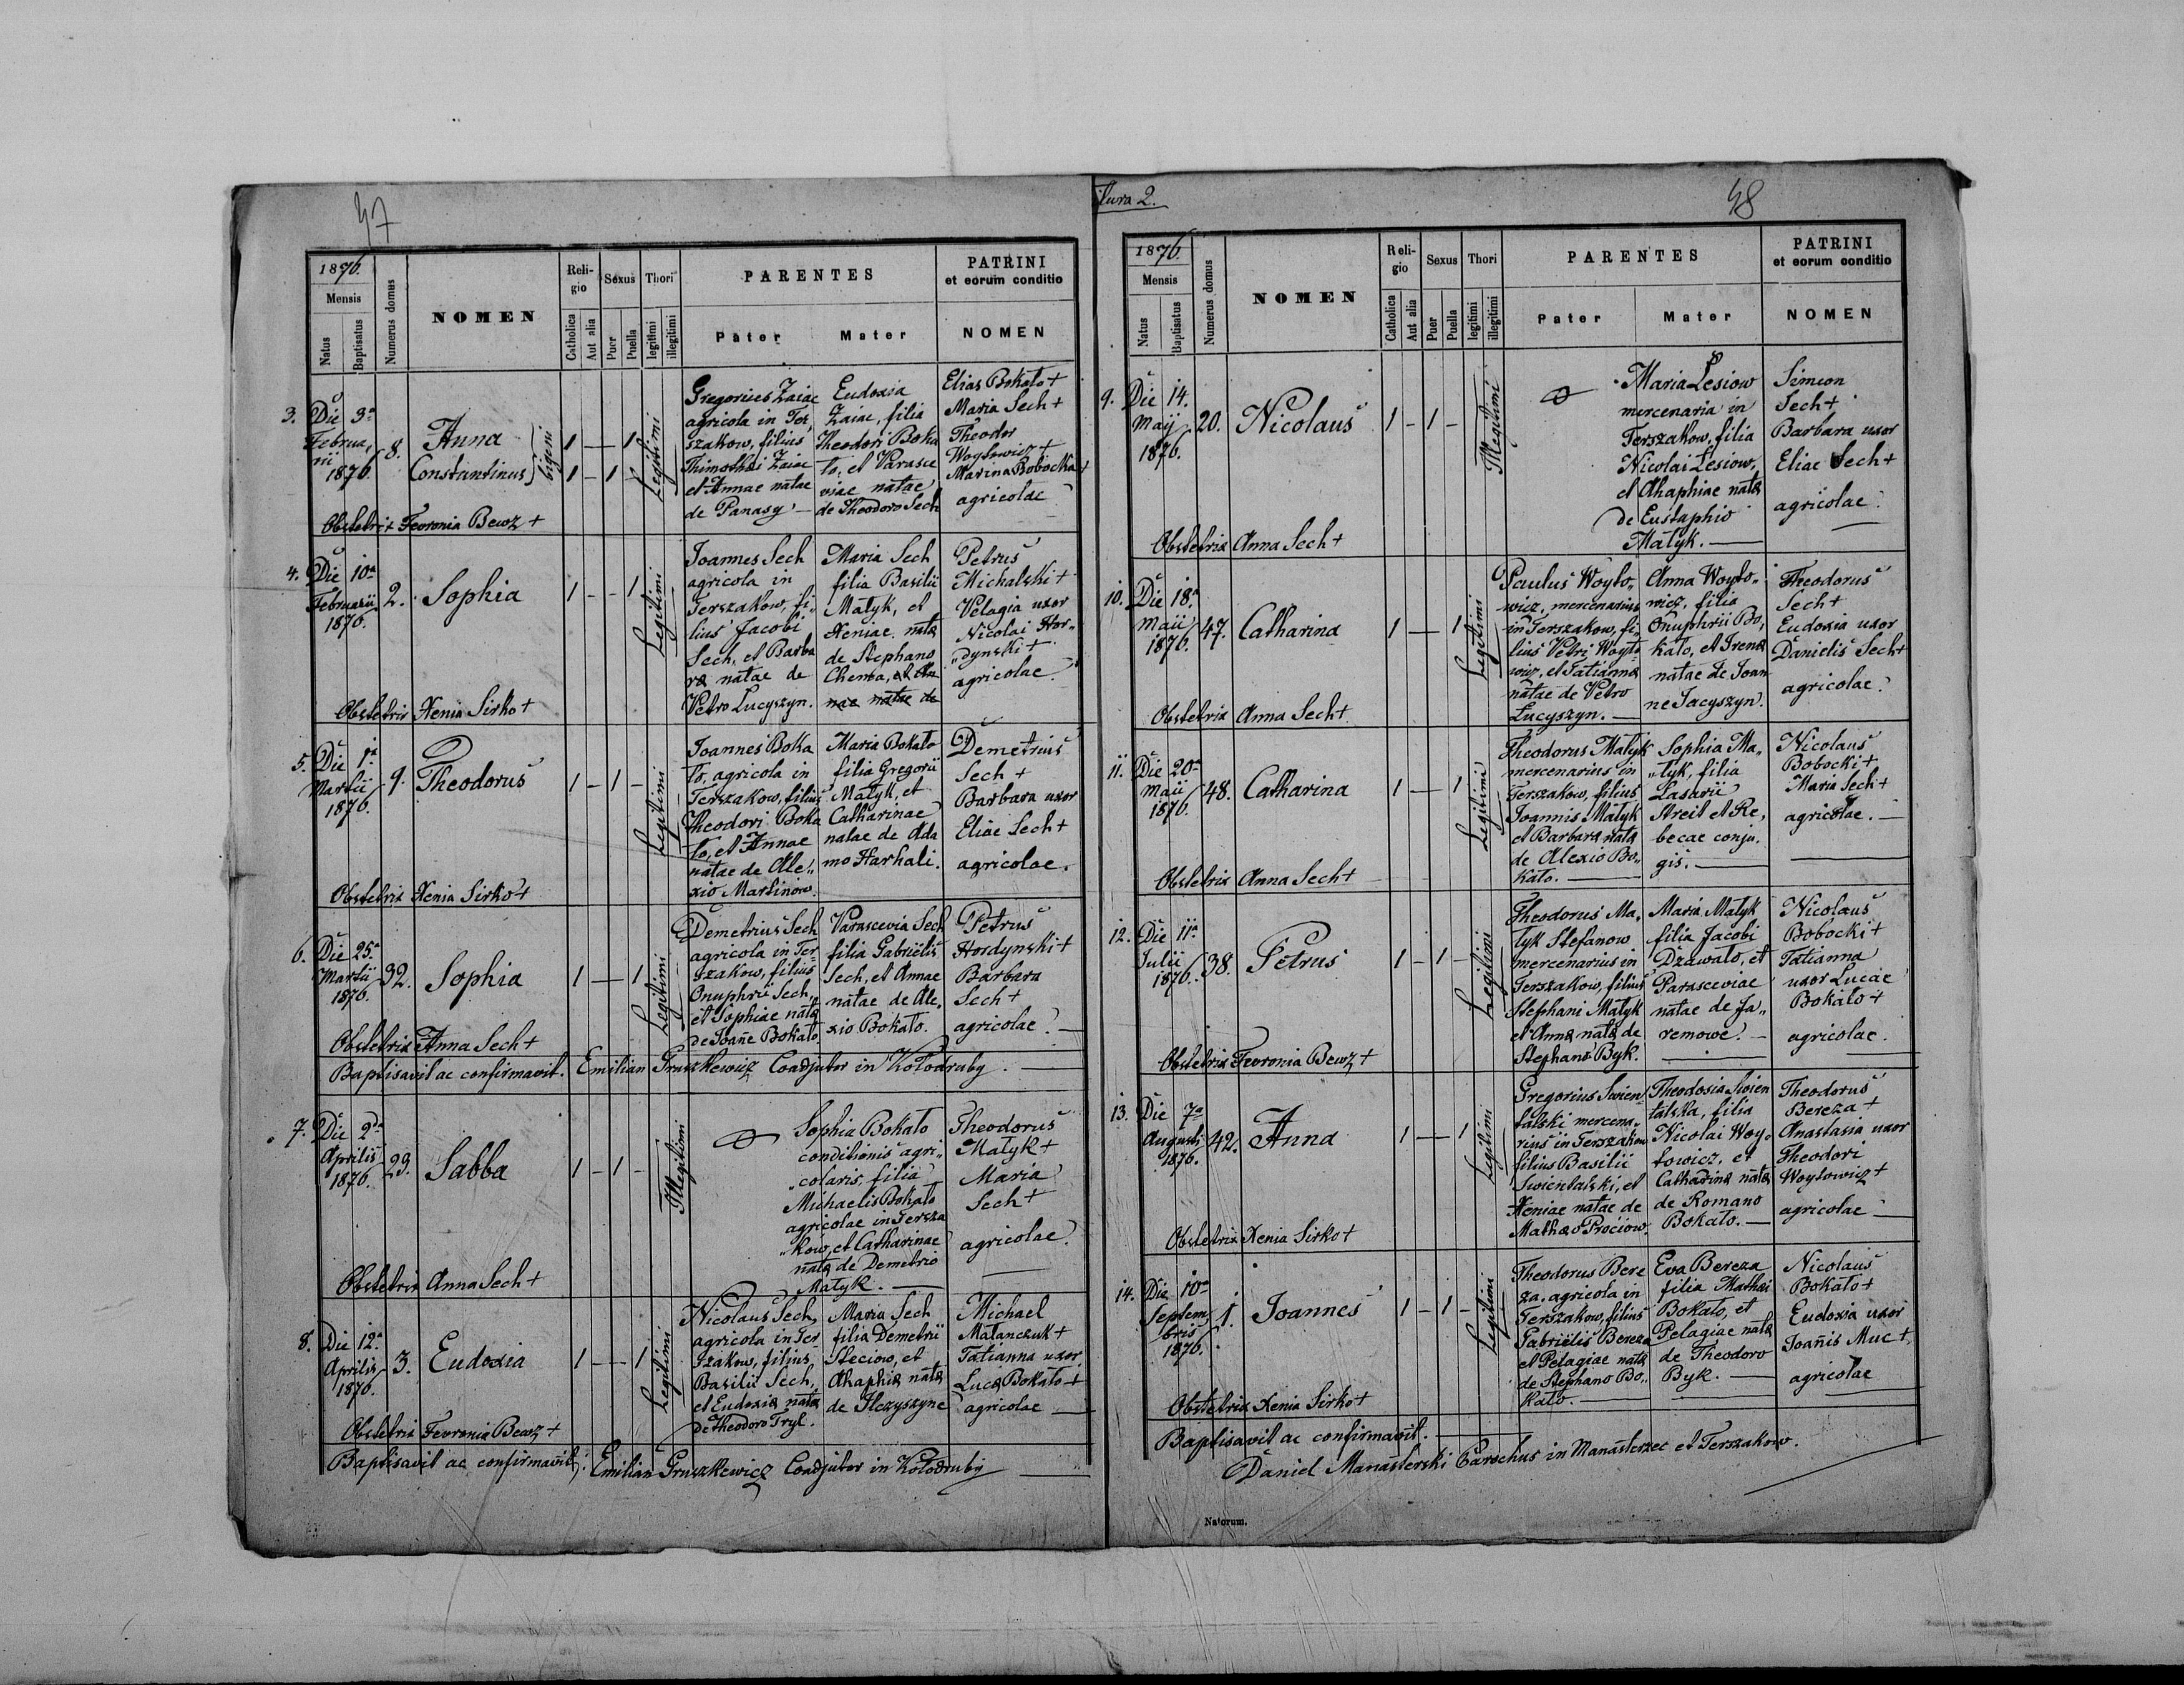 47
1876.
Mensis
Natus
Baptisatus
Numerus domus
NOMEN
Reli-
gio
Catholica
Aut alia
Sexus
Puer
Puella
Thori
legitimi
illegitimi
PARENTES
Pater
Mater
PATRINI
et eorum conditio
NOMEN
3. Die 3a
Februa,
rii
1876.
8.
Anna
Constantinus } bigeni
1 — 1
1 - 1 -
Legitimi
Gregorius Zaiac
agricola in Ter,
szakow, filius
Thimothei Zaiac
et Annae natae
de Panasy —
Eudoxia
Zaiac, filia
Theodori Boka
to, et Parasce
viae natae
de Theodoro Sech
Elias Bokato +
Maria Sech +
Theodor
Woytowicz +
Marina Bobocka +
agricolae
Obstetrix Fevronia Bewz +
4. Die 10a
Februarii
1876.
2.
Sophia
1 - - 1
Legitimi
Joannes Sech
agricola in
Terszakow, fi„
lius Jacobi
Sech, et Barba
rae natae de
Petro Lucyszyn.
Maria Sech
filia Basilii
Matyk, et
Xeniae natae
de Stephano
Chemba, et An
nae natae de
Petrus
Michalski +
Pelagia uxor
Nicolai Hor„
„dynski +
agricolae.
Obstetrix Xenia Sirko +
5. Die 1a
Martii
1876.
9.
Theodorus
1 - 1 -
Legitimi
Joannes Boka
to, agricola in
Terszakow, filius
Theodori Boka
to, et Annae
natae de Ale„
xio Martinow.
Maria Bokato
filia Gregorii
Matyk, et
Catharinae
natae de Ada
mo Harhali.
Demetrius
Sech +
Barbara uxor
Eliae Sech +
agricolae.
Obstetrix Xenia Sirko +
6. Die 25a
Martii
1876.
32.
Sophia
1 — 1
Legitimi
Demetrius Sech
agricola in Ter-
szakow, filius
Onuphrii Sech,
et Sophiae natae
de Joañe Bokato.
Parascevia Sech
filia Gabrielis
Sech, et Annae
natae de Ale„
xio Bokato.
Petrus
Hordynski +
Barbara
Sech +
agricolae. —
Obstetrix Anna Sech +
Baptisavit ac confirmavit. Emilian Gruszkewicz Coadjutor in Kołodruby. —
7. Die 2da
Aprilis
1876.
29.
Sabba
1 - 1 -
Illegitimi
Sophia Bokato
conditionis agri„
„colaris, filia
Michaelis Bokato
agricolae in Tersza
„kow, et Catharinae
natae de Demetrio
Matyk. —
Theodorus
Matyk +
Maria
Sech +
agricolae.
Obstetrix Anna Sech +
8. Die 12a
Aprilis
1876.
3.
Eudoxia
1 — 1
Legitimi
Nicolaus Sech,
agricola in Ter-
szakow, filius
Basilii Sech,
et Eudoxiae natae
de Theodoro Tryl.
Maria Sech
filia Demetrii
Steciow, et
Ahaphiae natae
de Ilczyszyne
Michael
Matanczuk +
Tatianna uxor
Lucae Bokato +
agricolae —
Obstetrix Fevronia Bewz +
Baptisavit ac confirmavit. Emilian Gruszkewicz Coadjutor in Kołodruby —
2.
48
1876.
Mensis
Natus
Baptisatus
Numerus domus
NOMEN
Reli-
gio
Catholica
Aut alia
Sexus
Puer
Puella
Thori
legitimi
illegitimi
PARENTES
Pater
Mater
PATRINI
et eorum conditio
NOMEN
9. Die 14.
Maij
1876.
20.
Nicolaus
1 - 1 -
Illegitimi
Maria Lesiow
mercenaria in
Terszakow, filia
Nicolai Lesiow,
et Ahaphiae natae
de Eustaphio
Matyk. —
Simeon
Sech +
Barbara uxor
Eliae Sech +
agricolae.
Obstetrix Anna Sech +
10. Die 18a
Maii
1876.
47.
Catharina
1 — 1
Legitimi
Paulus Woyto„
wicz, mercenarius
in Terszakow, fi„
lius Petri Woyto
wicz, et Tatiannae
natae de Petro
Lucyszyn. —
Anna Woyto„
wicz, filia
Onuphrii Bo,
kato, et Irenae
natae de Joan
ne Jacyszyn.
Theodorus
Sech +
Eudoxia uxor
Danielis Sech +
agricolae.
Obstetrix Anna Sech +
11. Die 20a
Maii
1876.
48.
Catharina
1 — 1
Legitimi
Theodorus Matyk
mercenarius in
Terszakow, filius
Joannis Matyk
et Barbarae natae
de Alexio Bo„
kato. —
Sophia Ma„
„tyk, filia
Lasarii
Streit et Re,
becae conju,
gis. —
Nicolaus
Bobocki +
Maria Sech +
agricolae. —
Obstetrix Anna Sech +
12. Die 11a
Julii
1876.
38.
Petrus
1 - 1 -
Legitimi
Theodorus Ma,
tyk Stefanow
mercenarius in
Terszakow, filius
Stephani Matyk
et Annae natae de
Stephano Byk.
Maria Matyk
filia Jacobi
Dzawało, et
Parasceviae
natae de Ja„
remowe. —
Nicolaus
Bobocki +
Tatianna
uxor Lucae
Bokato +
agricolae.
Obstetrix Fevronia Bewz +
13. Die 7a
Augusti
1876.
42.
Anna
1 — 1
Legitimi
Gregorius Swien
talski mercena„
rius in Terszakow
filius Basilii
Swientalski, et
Xeniae natae de
Mathaeo Prociow.
Theodosia Swien
talska, filia
Nicolai Woy„
towicz, et
Catharinae natae
de Romano
Bokato. —
Theodorus
Bereza +
Anastasia uxor
Theodori
Woytowicz +
agricolae —
Obstetrix Xenia Sirko +
14. Die 10a
Septem,
bris
1876.
1.
Joannes
1 - 1 -
Legitimi
Theodorus Bere
za, agricola in
Terszakow, filius
Gabrielis Bereza
et Pelagiae natae
de Stephano Bo„
kato. —
Eva Bereza
filia Mathei
Bokato, et
Pelagiae natae
de Theodoro
Byk. —
Nicolaus
Bokato +
Eudoxia uxor
Joañis Muc +
agricolae
Obstetrix Xenia Sirko +
Baptisavit ac confirmavit. —
Daniel Manasterski Parochus in Manasterzec et Terszakow.
Natorum.